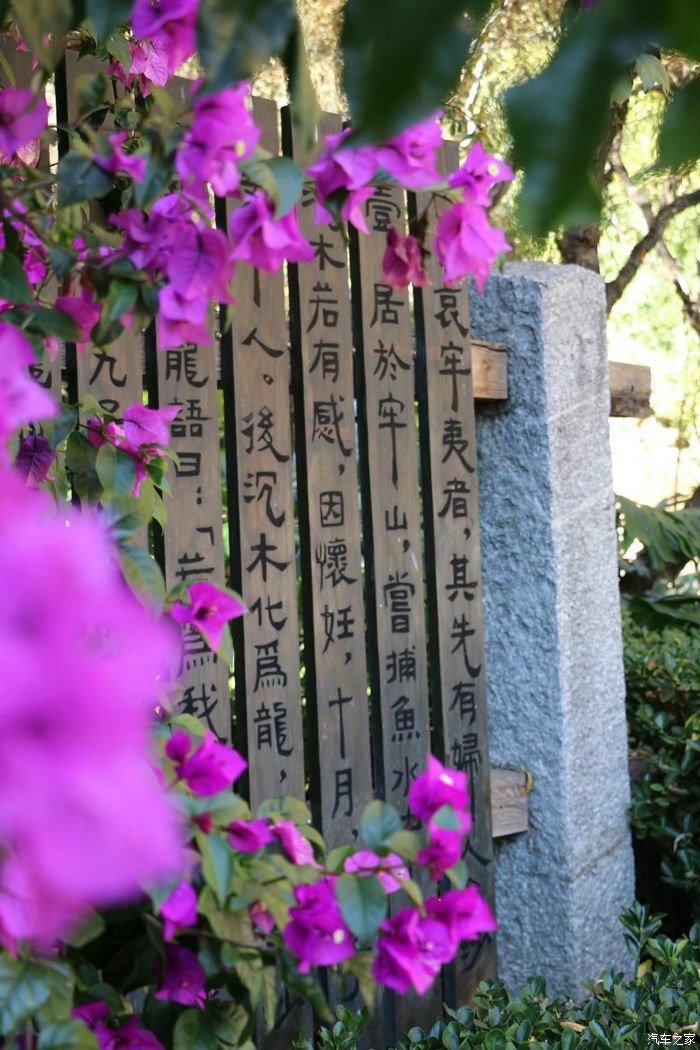 哀牢夷者，其先有婦人
壹居於牢山，嘗捕魚水
木若有感，因懷妊，十月，
人。後沉木化爲龍，
龍語曰：「若爲我
九
汽车之家